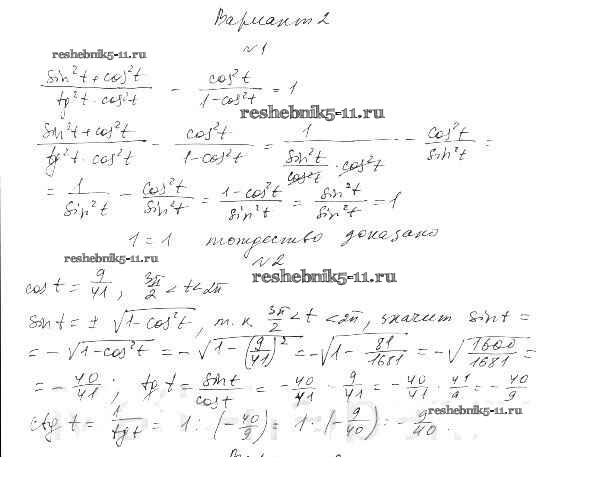 Вариант 2
№1
reshebnik5-11.ru
(sin²t + cos²t)/(tg²t · cos²t) - cos²t/(1-cos²t) = 1
reshebnik5-11.ru
(sin²t + cos²t)/(tg²t · cos²t) - cos²t/(1-cos²t) = 1/((sin²t/cos²t) · cos²t) - cos²t/sin²t =
= 1/sin²t - cos²t/sin²t = (1-cos²t)/sin²t = sin²t/sin²t = 1
1 = 1 тождество доказано
reshebnik5-11.ru
№2
reshebnik5-11.ru
cos t = 9/41, 3π/2 < t < 2π
sin t = ± √(1-cos²t), т.к. 3π/2 < t < 2π, значит sin t =
= -√(1-cos²t) = -√(1-(9/41)²) = -√(1-81/1681) = -√(1600/1681) =
= -40/41; tg t = sin t/cos t = -40/41 : 9/41 = -40/41 · 41/9 = -40/9
reshebnik5-11.ru
ctg t = 1/tg t = 1 : (-40/9) = 1 · (-9/40) = -9/40.